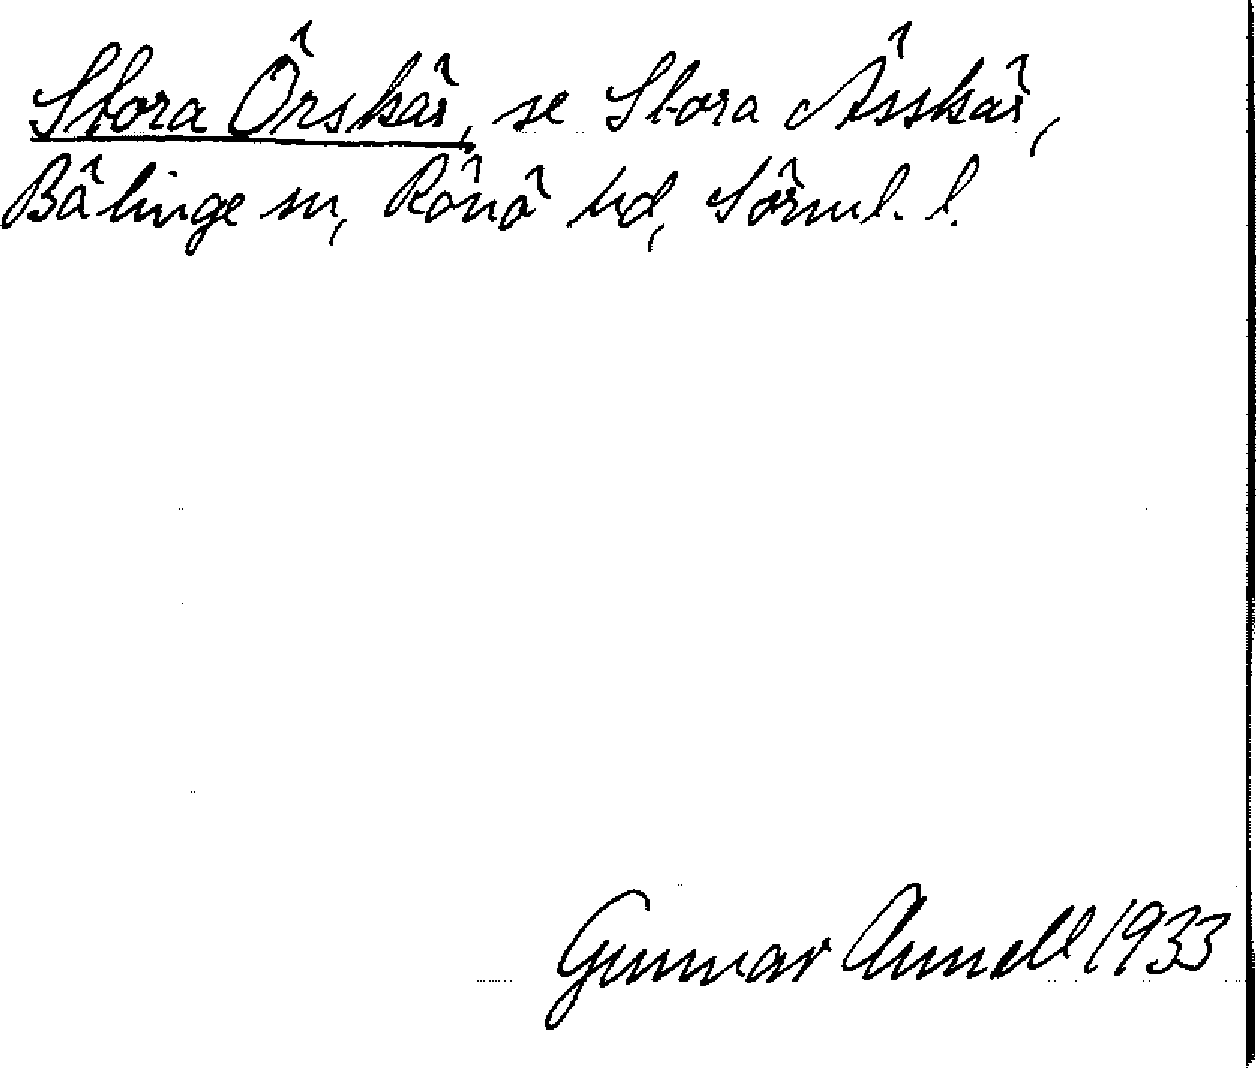 Stora Örskär, se Stora Ässkär,
Bälinge sn, Rönö hd, Sörml. l.
Gunnar Annell 1933